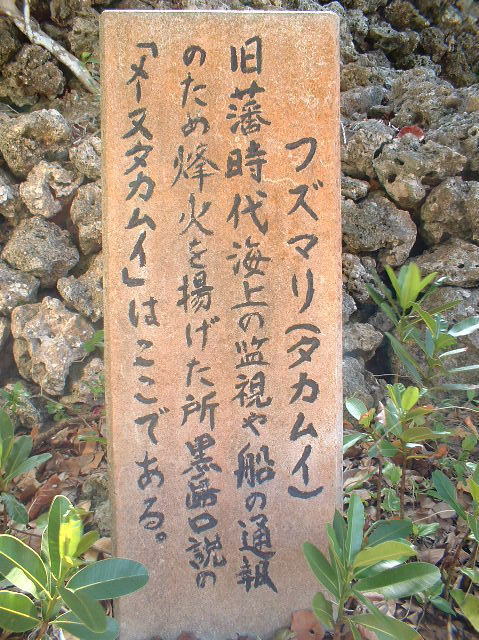 フズマリ(タカムイ)
旧藩時代海上の監視や船の通報
のため烽火を揚げた所黒島口説の
「メースタカムイ」はここである。